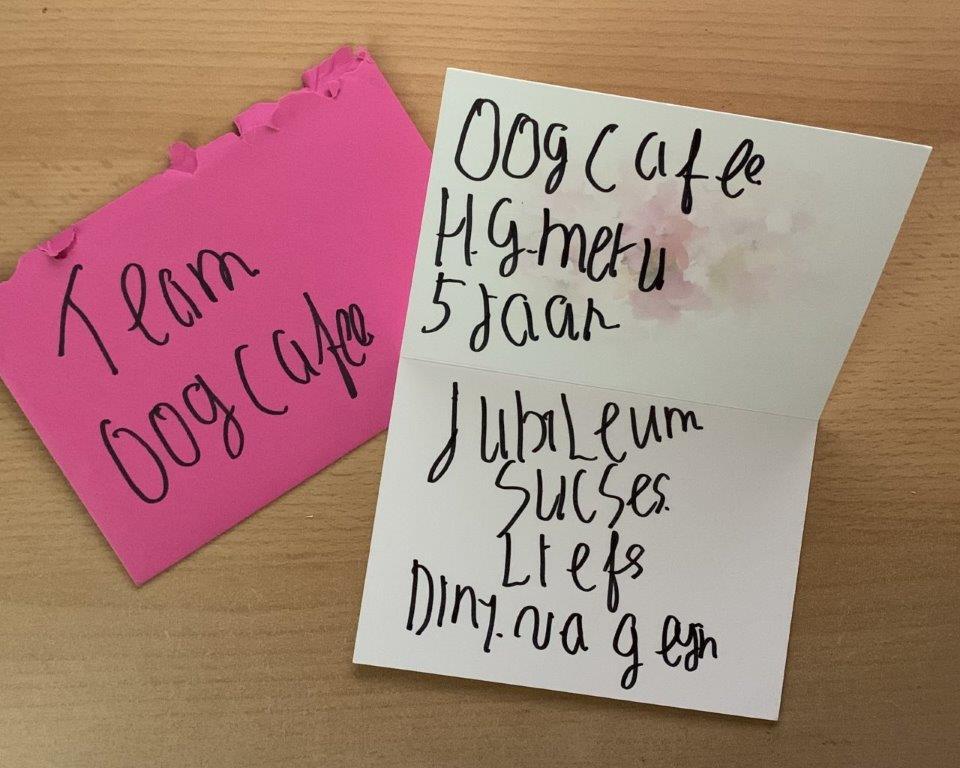 Team
OogCafee
OogCafee
H.G. met u
5 Jaar
Jubileum
Sucses.
Liefs
Diny. va